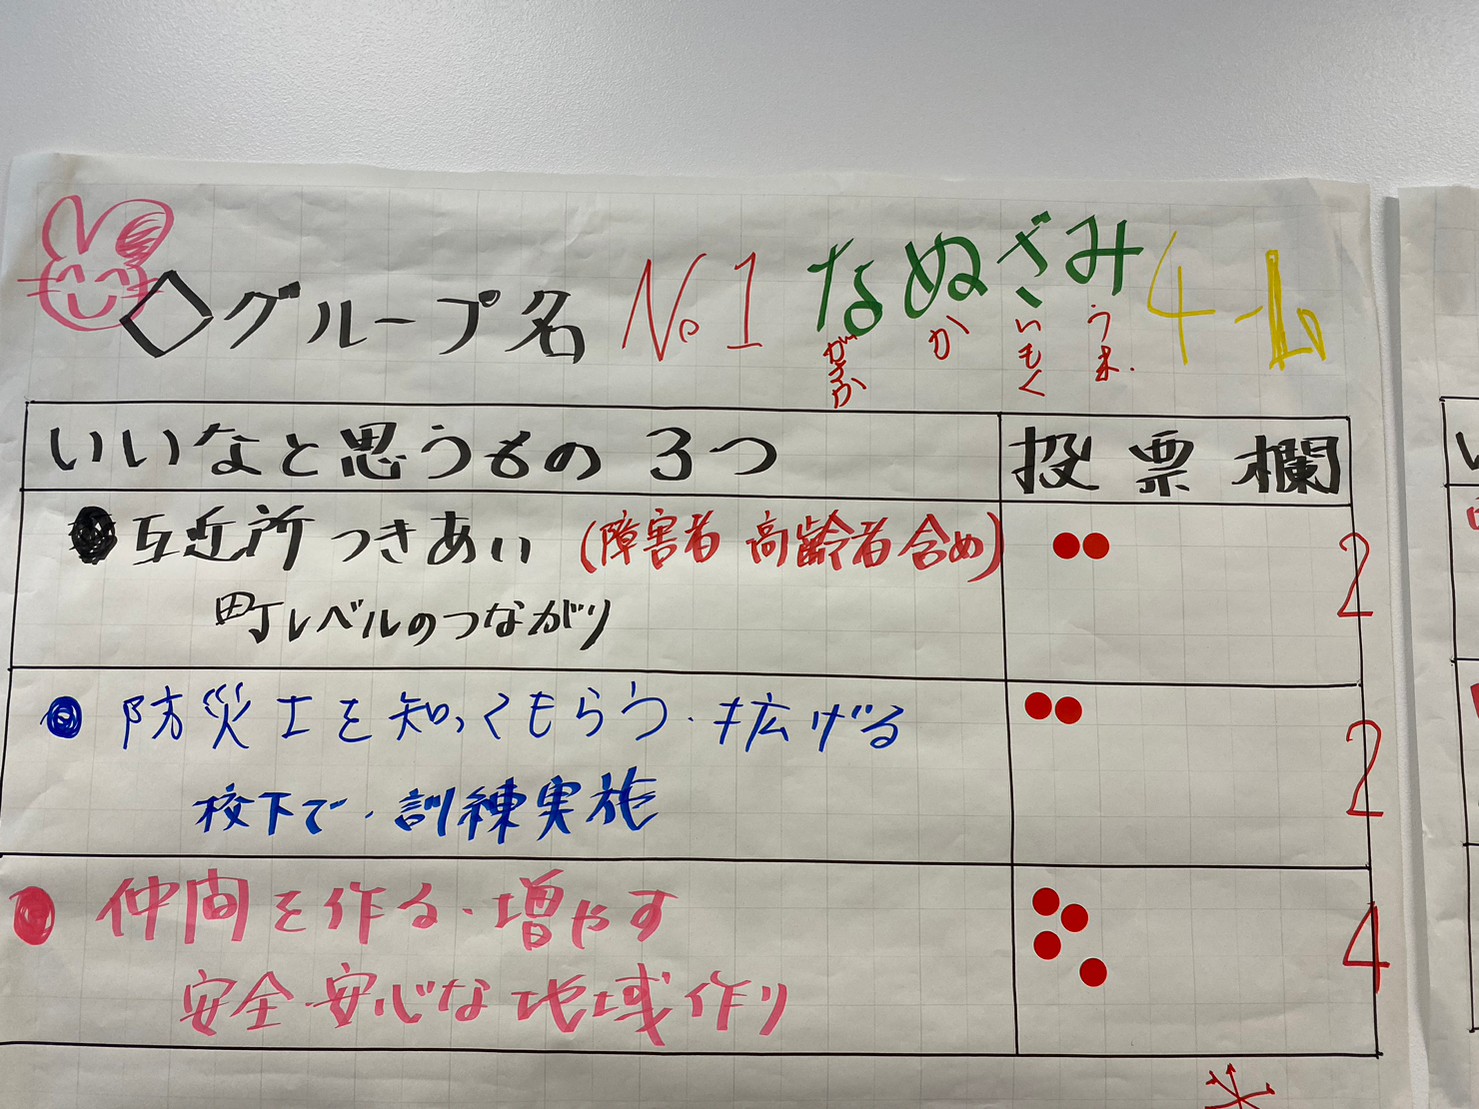 ◇グループ名 No.1 なぬざみ 4-
か いもく うま
いいなと思うもの 3つ 投票欄
●互近所つきあい (障害者 高齢者含め) 2
町レベルのつながり
●防災士を知ってもらう・拡げる 2
校下で・訓練実施
●仲間を作る・増やす 4
安全・安心な地域作り